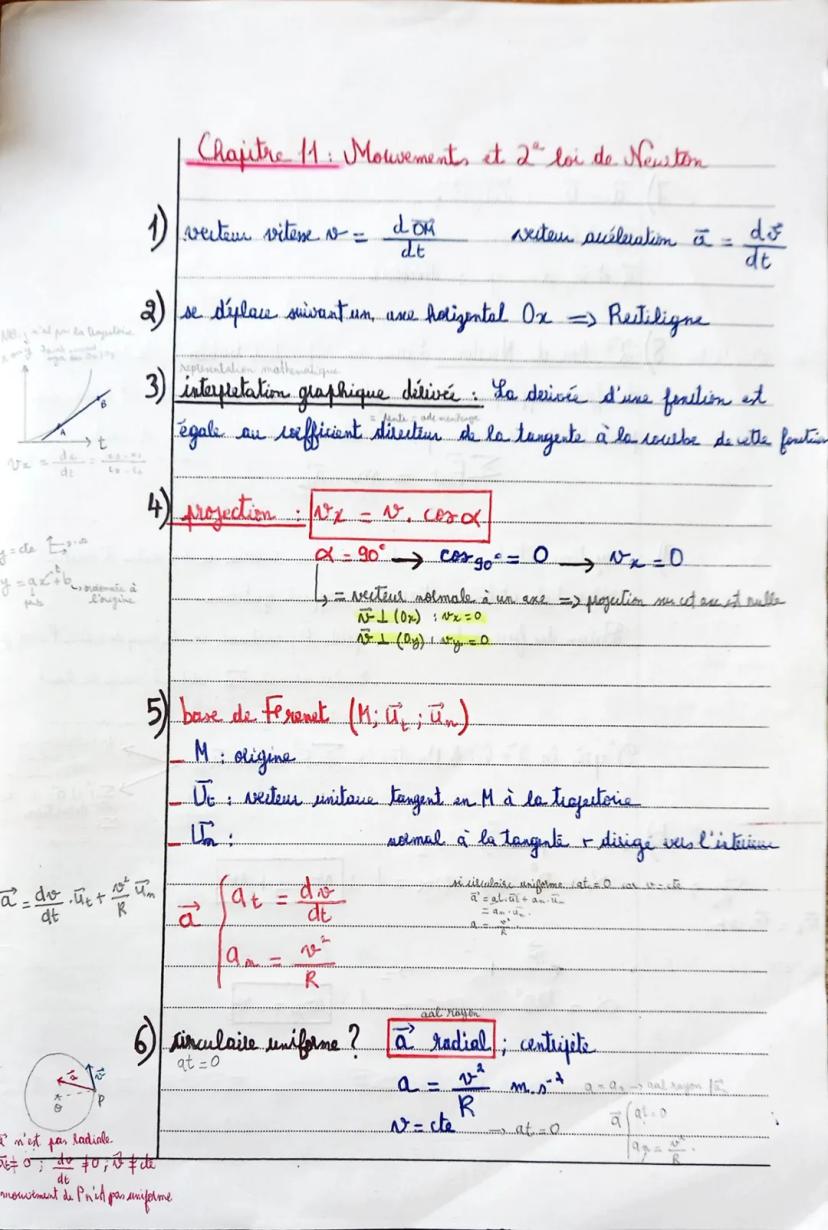 Chapitre 11 : Mouvements et 2e loi de Newton
1) vecteur vitesse v = dOM/dt vecteur accéleration a⃗ = dv⃗/dt
2) se déplace suivant un axe horizental Ox => Rectiligne
représentation mathématique
3) interpretation graphique dérivée : La derivée d'une fonction est
égale au coefficient directeur de la tangente à la courbe de cette fonction
A B t
vx = dx/dt =
4) projection : vx = v . cos α
α = 90° → cos 90° = 0 → vx = 0
↳ = vecteur normale à un axe => projection sur cet axe est nulle
v⃗ ⊥ (Ox) : vx = 0
v⃗ ⊥ (Oy) : vy = 0
y = cte
y = ax + b → ordonnée à
l'origine
5) base de Frenet (M; u⃗t ; u⃗n)
– M : origine
– U⃗t : vecteur unitaire tangent en M à la trajectoire
– U⃗n : normal à la tangente + dirigé vers l'intérieur
a⃗ = dv/dt . u⃗t + v²/R u⃗n
a⃗ { at = dv/dt
an = v²/R
si circulaire uniforme : at = 0 car v = cte
a⃗ = at.u⃗t + an.u⃗n
= an.u⃗n
a = v²/R
6) circulaire uniforme ? a⃗ radial ; centripète
at = 0
a = v²/R m.s⁻²
v = cte → at = 0
a⃗ { at = 0
an = v²/R
a⃗ v⃗ O P
a⃗ n'est pas radiale.
at ≠ 0 ; dv/dt ≠ 0 ; v⃗ ≠ cte
mouvement de P n'est pas uniforme